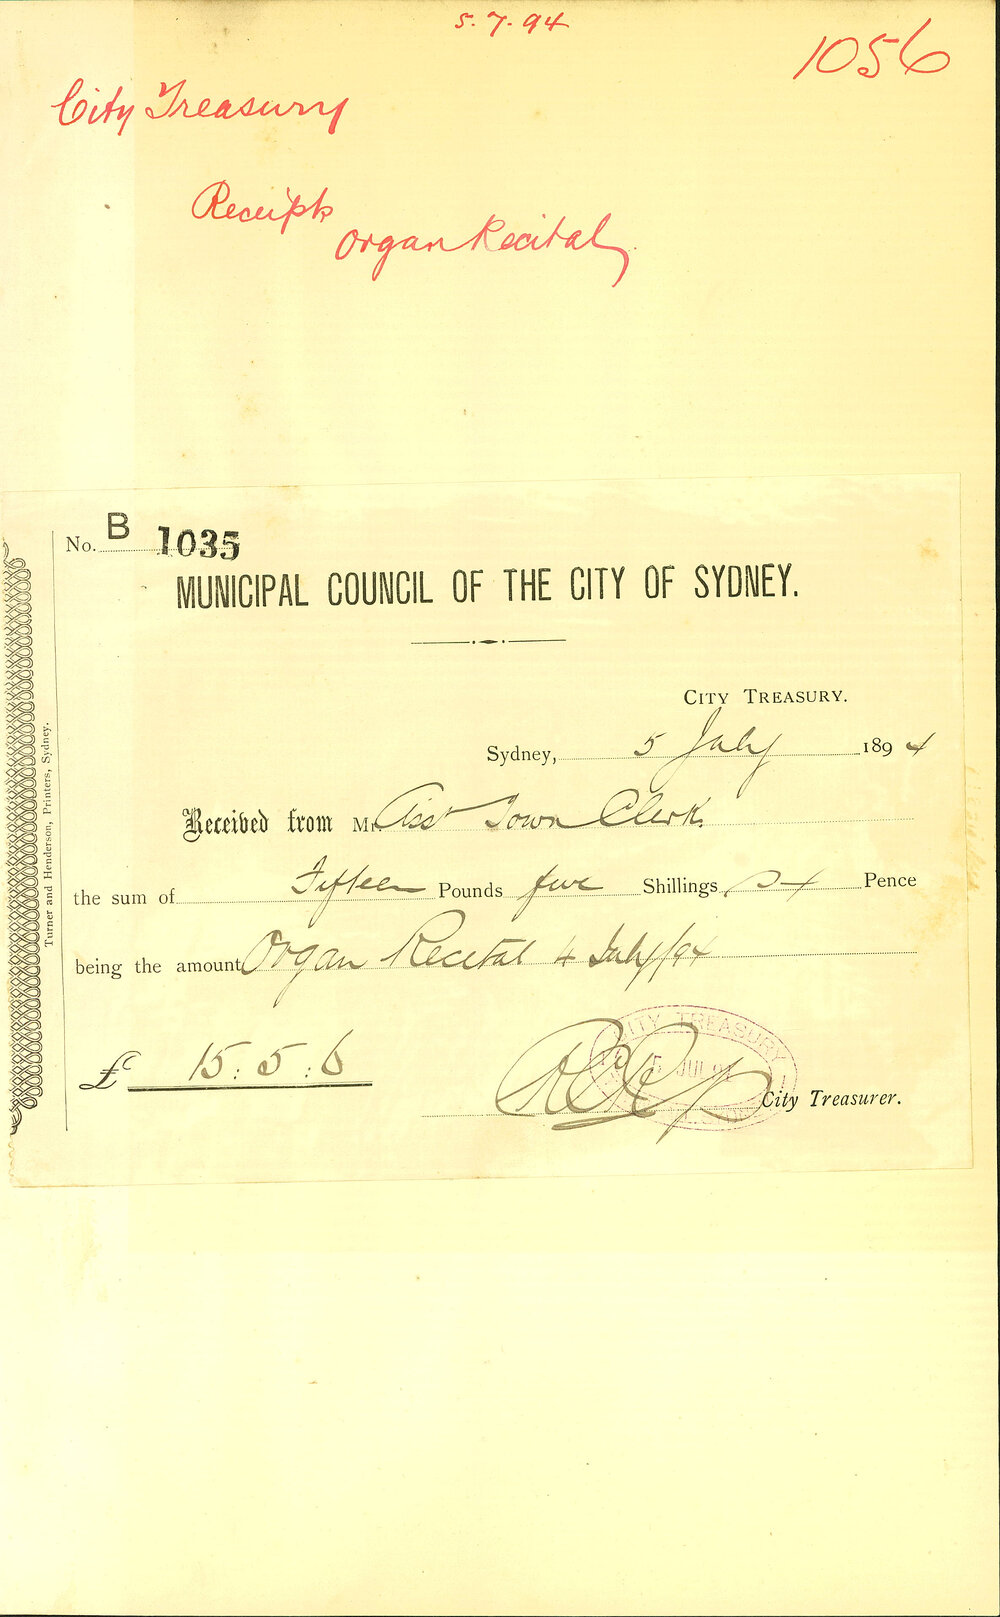 5.7.94
1056
City Treasury
Receipts
Organ Recital
No. B 1035
MUNICIPAL COUNCIL OF THE CITY OF SYDNEY.
CITY TREASURY.
Sydney, 5 July 1894
Received from Mr. Asst Town Clerk
the sum of Fifteen Pounds five Shillings six Pence
being the amount Organ Recital 4 July/94
£ 15:5:6
CITY TREASURY
5 JUL 94
City Treasurer.
Turner and Henderson, Printers, Sydney.